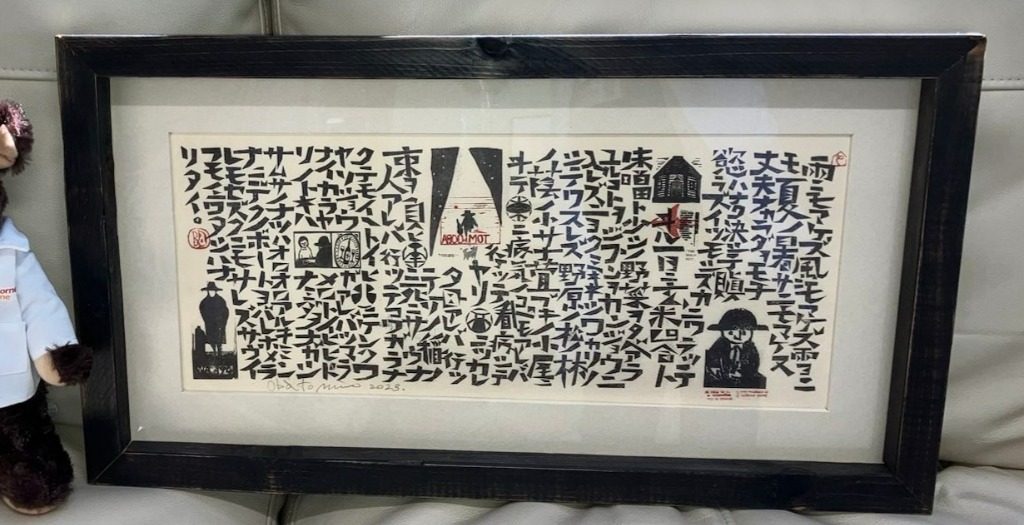 雨ニモマケズ風ニモマケズ雪ニ
モ夏ノ暑サニモマケヌ
丈夫ナカラダヲモチ
慾ハナク決シテ瞋
ラズイツモシヅカ
ニワラッテ
ヰル一日ニ玄米四合ト
味噌ト少シノ野菜ヲタベアラ
ユルコトヲジブンヲカンジョウニ
入レズニヨクミキキシワカリソ
シテワスレズ野原ノ松ノ林
ノ蔭ノ小サナ萱ブキノ小屋ニ
病気ノコドモアレバ
行ッテ看病シテ
ヤリ西ニツカレ
タ母アレバ行ッ
テソノ稲ノ
東ヲ負ヒ南ニ死ニサウナ
人アレバ行ッテコワガラナ
クテモイイトイヒ北ニケンクワ
ヤソショウガアレバツマラ
ナイカラヤメロ
ソノトキハナミダヲナガシ
サムサノナツハオロオロアルキミン
ナニデクノボートヨバレホメラ
レモセズクニモサレズサウイ
フモノニワタシハナ
リタイ。
2023.